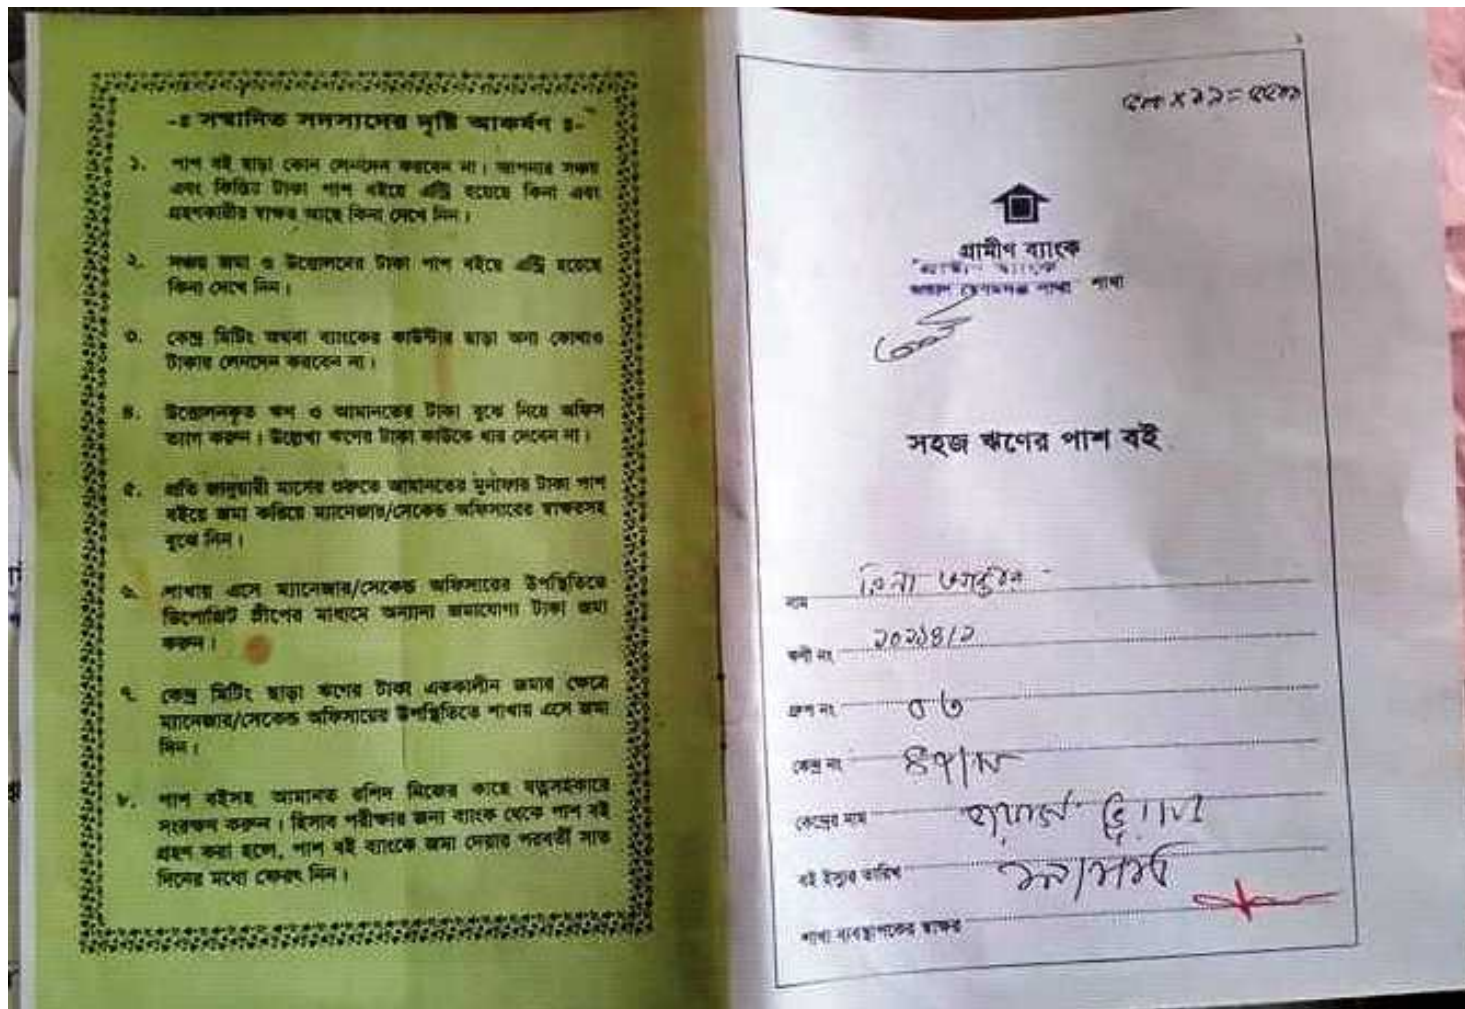 -ঃ সম্মানিত সদস্যদের দৃষ্টি আকর্ষণ ঃ-
১. পাশ বই ছাড়া কোন লেনদেন করবেন না। আপনার সঞ্চয়
এবং কিস্তির টাকা পাশ বইয়ে এন্ট্রি হয়েছে কিনা এবং
গ্রহণকারীর স্বাক্ষর আছে কিনা দেখে নিন।
২. সঞ্চয় জমা ও উত্তোলনের টাকা পাশ বইয়ে এন্ট্রি হয়েছে
কিনা দেখে নিন।
৩. কেন্দ্র মিটিং অথবা ব্যাংকের কাউন্টার ছাড়া অন্য কোথাও
টাকার লেনদেন করবেন না।
৪. উত্তোলনকৃত ঋণ ও আমানতের টাকা বুঝে নিয়ে অফিস
ত্যাগ করুন। উল্লেখ্য ঋণের টাকা কাউকে ধার দেবেন না।
৫. প্রতি জানুয়ারী মাসের শুরুতে আমানতের মুনাফার টাকা পাশ
বইয়ে জমা করিয়ে ম্যানেজার/সেকেন্ড অফিসারের স্বাক্ষরসহ
বুঝে নিন।
৬. শাখায় এসে ম্যানেজার/সেকেন্ড অফিসারের উপস্থিতিতে
ডিপোজিট স্লীপের মাধ্যমে অন্যান্য জমাযোগ্য টাকা জমা
করুন।
৭. কেন্দ্র মিটিং ছাড়া ঋণের টাকা এককালীন জমার ক্ষেত্রে
ম্যানেজার/সেকেন্ড অফিসারের উপস্থিতিতে শাখায় এসে জমা
দিন।
৮. পাশ বইসহ আমানত রশিদ নিজের কাছে যত্নসহকারে
সংরক্ষন করুন। হিসাব পরীক্ষার জন্য ব্যাংক থেকে পাশ বই
গ্রহণ করা হলে, পাশ বই ব্যাংকে জমা দেয়ার পরবর্তী সাত
দিনের মধ্যে ফেরৎ নিন।
গ্রামীণ ব্যাংক
শাখা
সহজ ঋণের পাশ বই
নাম রিনা আক্তার
ঋণী নং ২০২১৪/২
গ্রুপ নং ০৩
কেন্দ্র নং
কেন্দ্রের নাম
বই ইস্যুর তারিখ
শাখা ব্যবস্থাপকের স্বাক্ষর